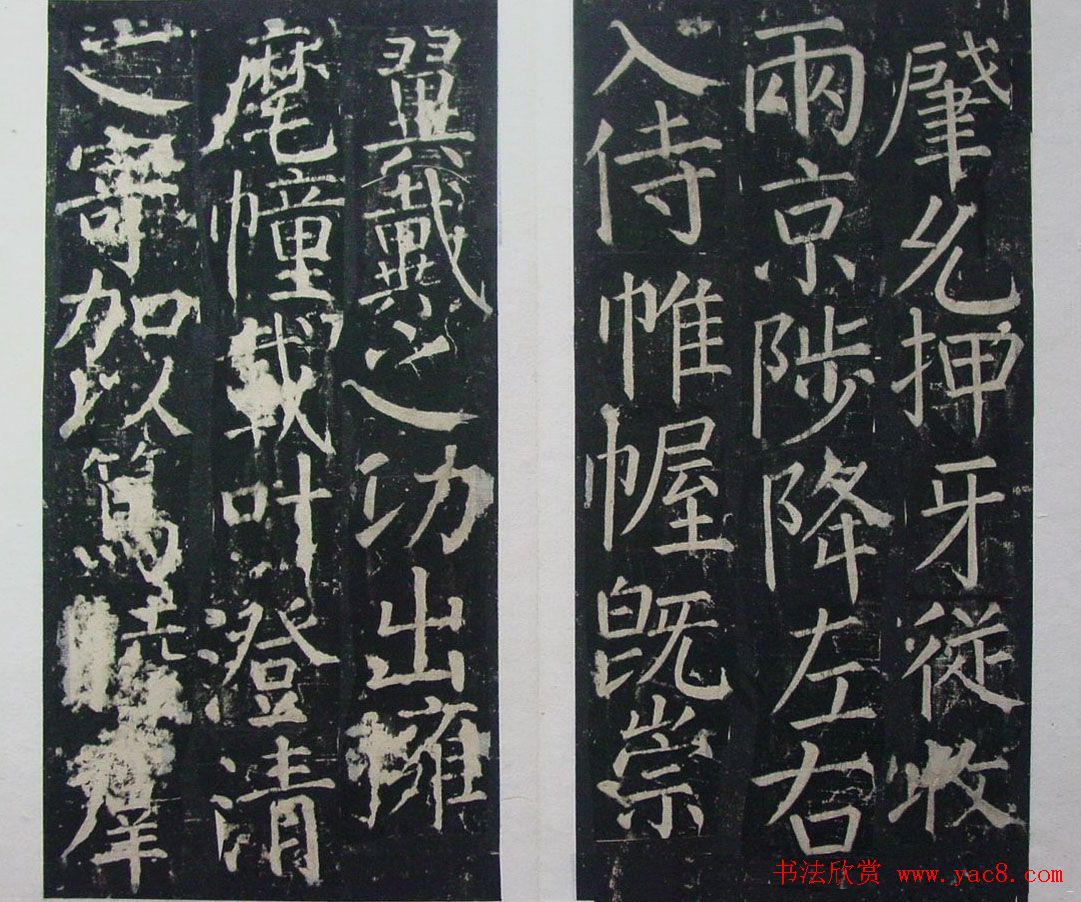 肇允押牙從收
兩京陟降左右
入侍帷幄既崇
翼戴之功出擁
麾幢載叶澄清
之寄加以篤睦群
书法欣赏 www.yac8.com